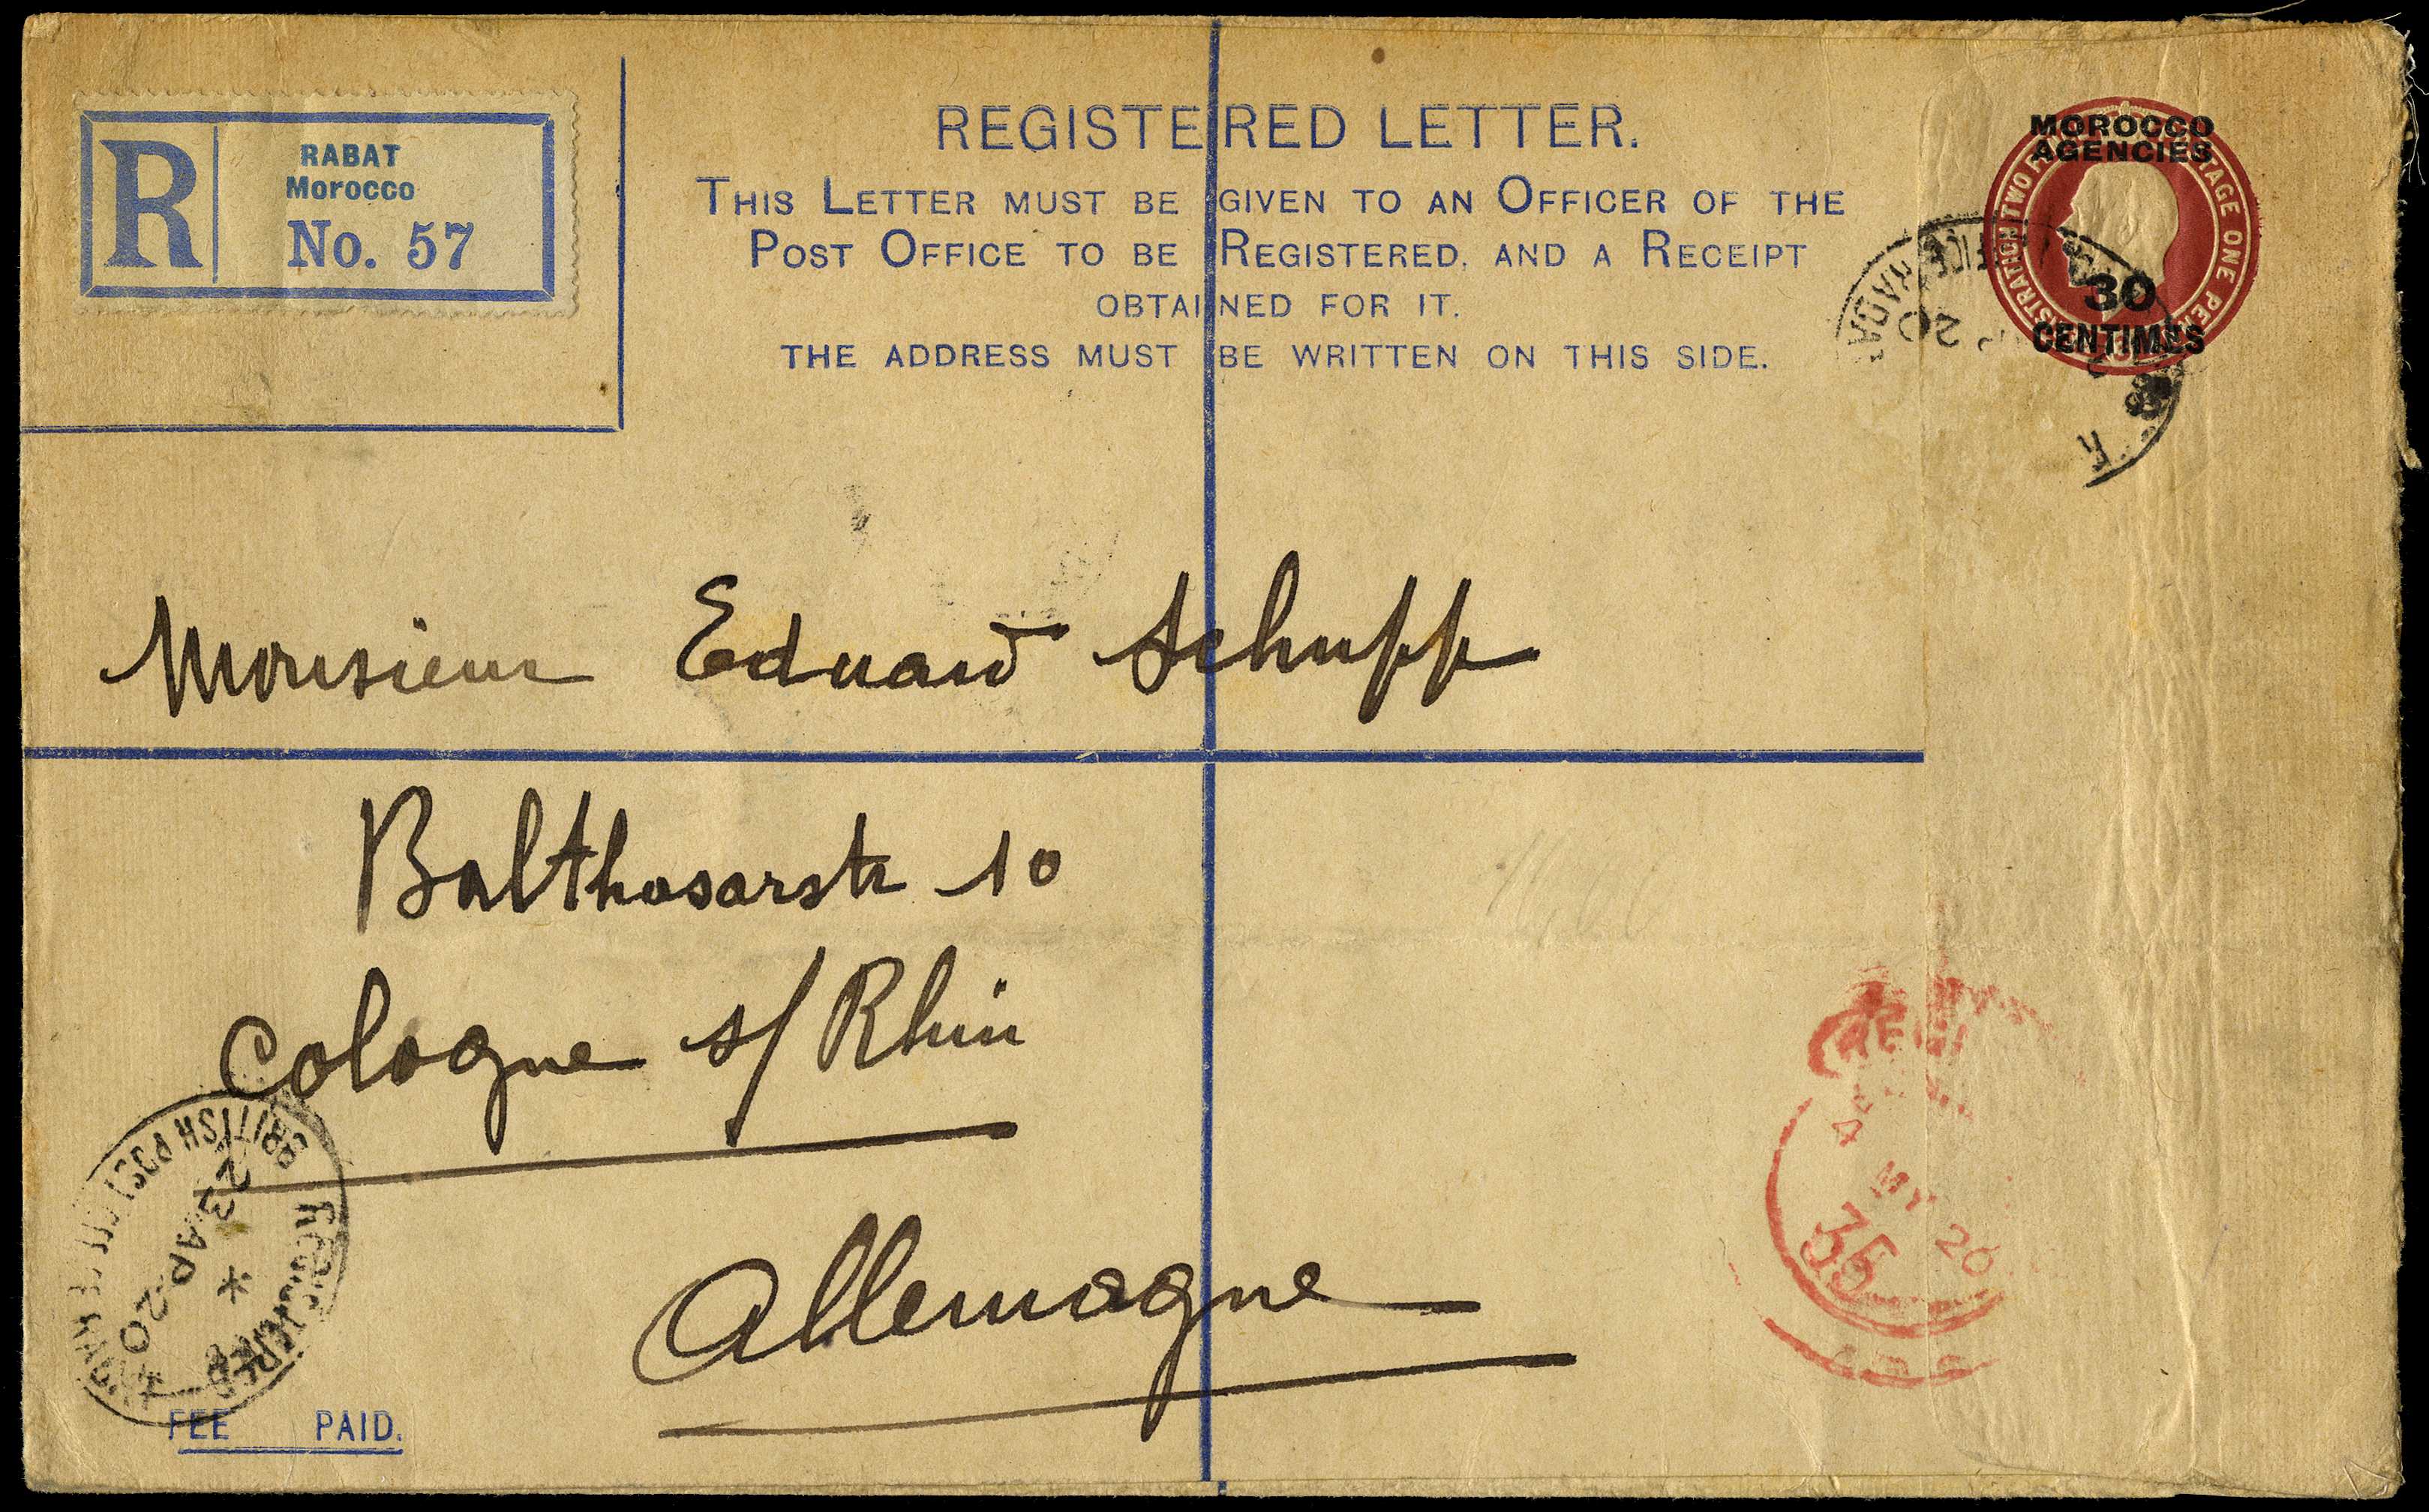 R
RABAT
Morocco
No. 57
REGISTERED LETTER.
THIS LETTER MUST BE GIVEN TO AN OFFICER OF THE
POST OFFICE TO BE REGISTERED, AND A RECEIPT
OBTAINED FOR IT.
THE ADDRESS MUST BE WRITTEN ON THIS SIDE.
MOROCCO
AGENCIES
30
CENTIMES
Monsieur Eduard Schupp
Balthasarstr 10
Cologne s/Rhin
Allemagne
BRITISH POST OFFICE RABAT
REGISTERED
23 AP 20
4 MY 20
35
FEE PAID.